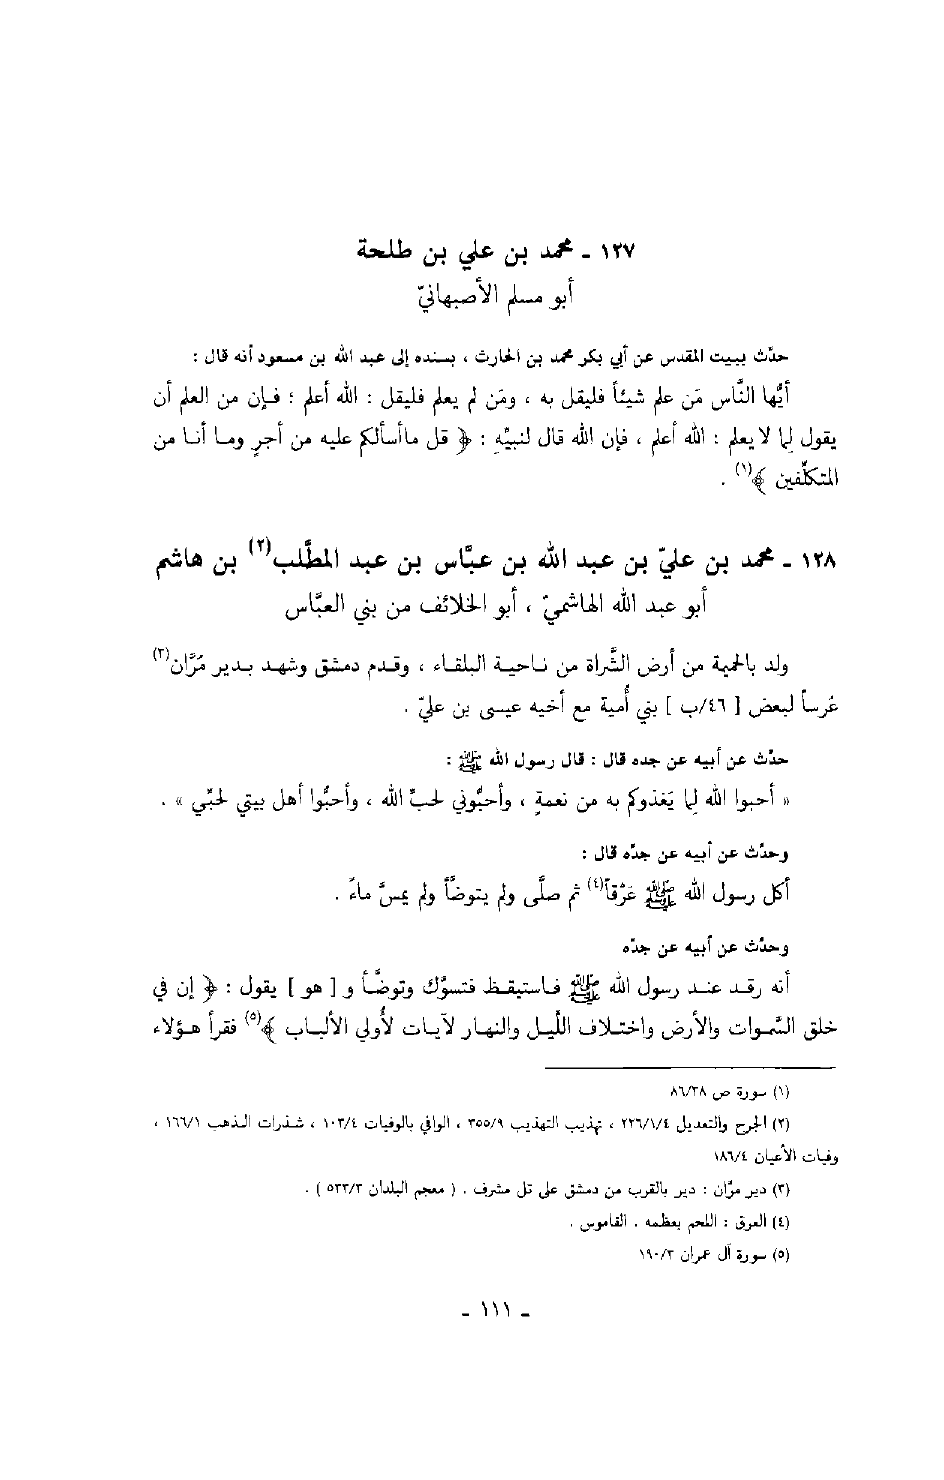 ١٢٧ ـ محمد بن علي بن طلحة
أبو مسلم الأصبهانيّ
حدّث ببيت المقدس عن أبي بكر محمد بن الحارث ، بسنده إلى عبد الله بن مسعود أنه قال :
أيُّها النَّاس مَن علم شيئاً فليقل به ، ومَن لم يعلم فليقل : الله أعلم ؛ فـإن من العلم أن
يقول لِما لا يعلم : الله أعلم ، فإن الله قال لنبيِّه : ﴿ قل ماأسألكم عليه من أجرٍ ومـا أنـا من
المتكلِّفين ﴾(١) .
١٢٨ ـ محمد بن عليّ بن عبد الله بن عبَّاس بن عبد المطَّلب(٢) بن هاشم
أبو عبد الله الهاشميّ ، أبو الخلائف من بني العبَّاس
ولد بالحميمة من أرض الشَّراة من نـاحيـة البلقـاء ، وقـدم دمشق وشهـد بـدير مُرَّان(٣)
عُرساً لبعض [ ٤٦/ب ] بني أُمية مع أخيه عيسى بن عليّ .
حدّث عن أبيه عن جده قال : قال رسول الله ﷺ :
« أحبوا الله لِما يَغذوكم به من نعمةٍ ، وأحبُّوني لحبِّ الله ، وأحبُّوا أهل بيتي لحبِّي » .
وحدّث عن أبيه عن جدّه قال :
أكل رسول الله ﷺ عَرْقاً(٤) ثم صلَّى ولم يتوضَّأ ولم يمسَّ ماءً .
وحدّث عن أبيه عن جدّه
أنه رقـد عنـد رسول الله ﷺ فـاستيقـظ فتسوَّك وتوضَّـأ و [ هو ] يقول : ﴿ إن في
خلق السَّموات والأرض واختـلاف اللَّيـل والنهـار لآيـات لأُولي الألبـاب ﴾(٥) فقرأ هـؤلاء
(١) سورة ص ٨٦/٣٨
(٢) الجرح والتعديل ٢٢٦/١/٤ ، تهذيب التهذيب ٣٥٥/٩ ، الوافي بالوفيات ١٠٣/٤ ، شـذرات الـذهب ١٦٦/١ ،
وفيات الأعيان ١٨٦/٤
(٣) دير مرّان : دير بالقرب من دمشق على تل مشرف . ( معجم البلدان ٥٣٣/٢ ) .
(٤) العرق : اللحم بعظمه . القاموس .
(٥) سورة آل عمران ١٩٠/٣
ـ ١١١ ـ